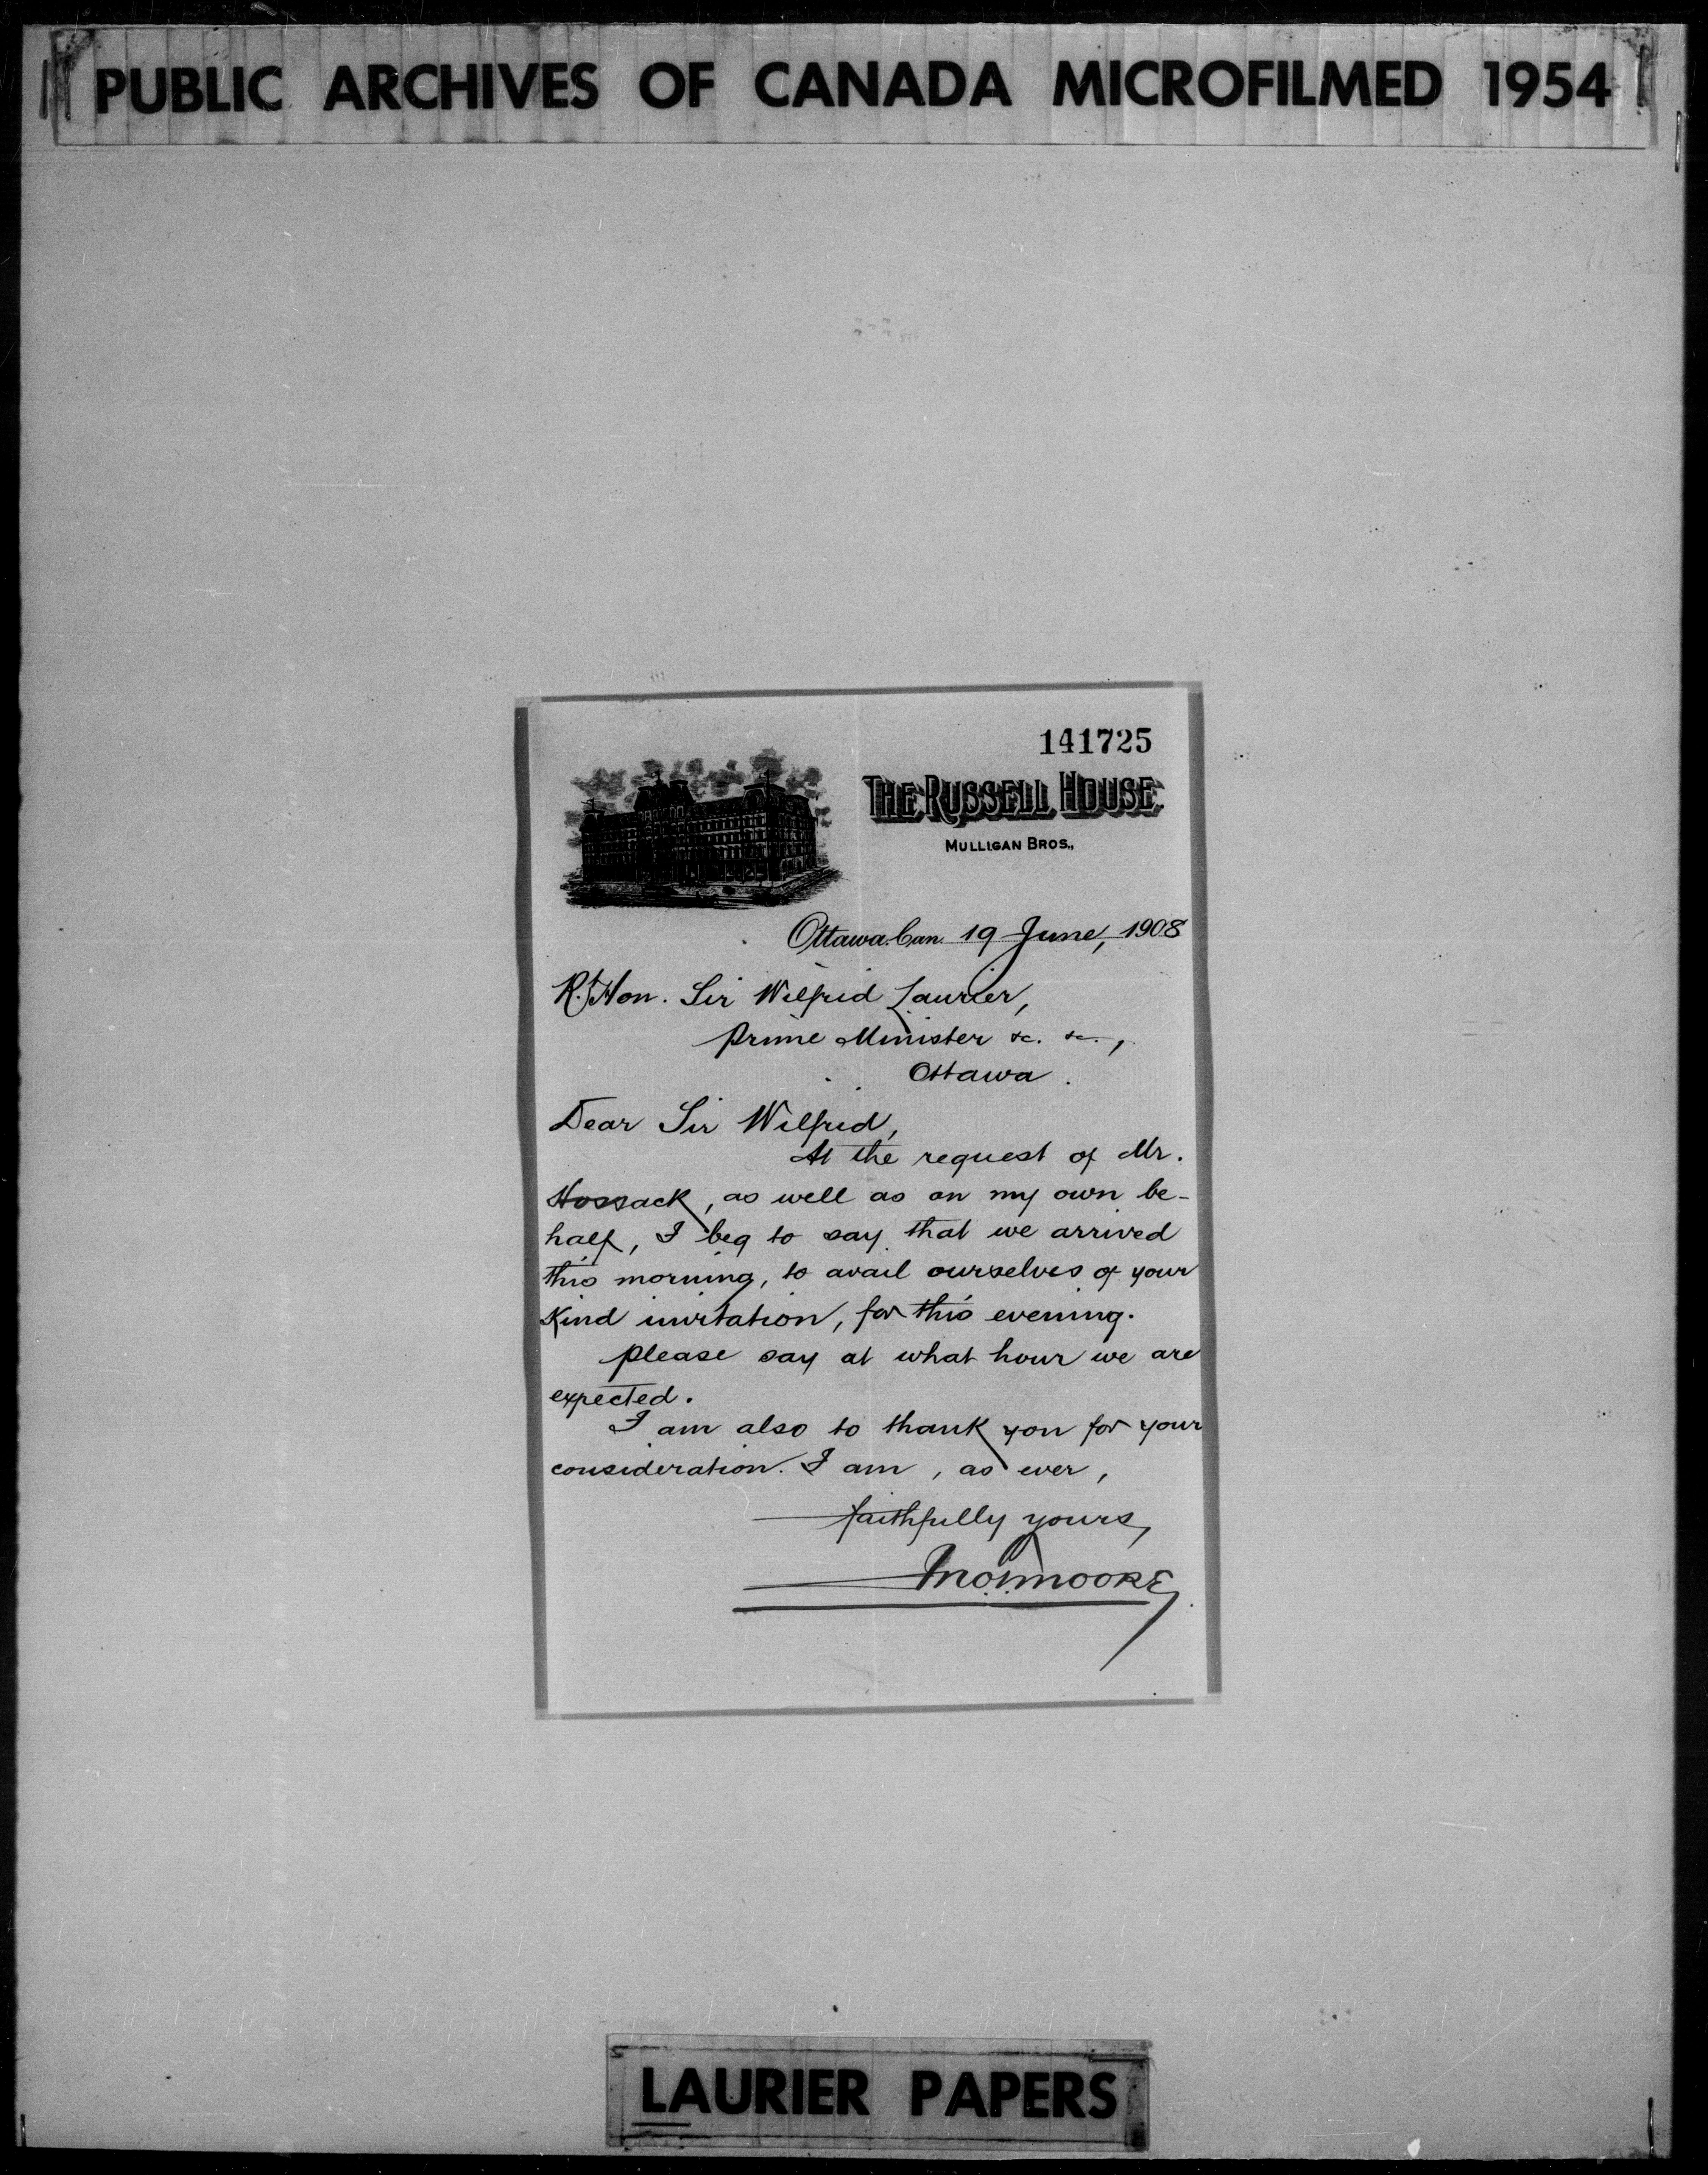 PUBLIC ARCHIVES OF CANADA MICROFILMED 1954
141725
THE RUSSELL HOUSE
MULLIGAN BROS.,
Ottawa. Can. 19 June, 1908
Rt. Hon. Sir Wilfrid Laurier,
Prime Minister &c. &c.,
Ottawa.
Dear Sir Wilfrid,
At the request of Mr.
Hossack, as well as on my own be-
half, I beg to say that we arrived
this morning, to avail ourselves of your
kind invitation, for this evening.
Please say at what hour we are
expected.
I am also to thank you for your
consideration. I am, as ever,
faithfully yours,
MOORE
LAURIER PAPERS